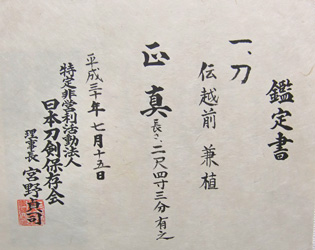 鑑定書
一、刀
伝越前 兼植
正真 長さ、二尺四寸三分有之
平成三十年七月十五日
特定非営利活動法人
日本刀剣保存会
理事長 宮野貞司